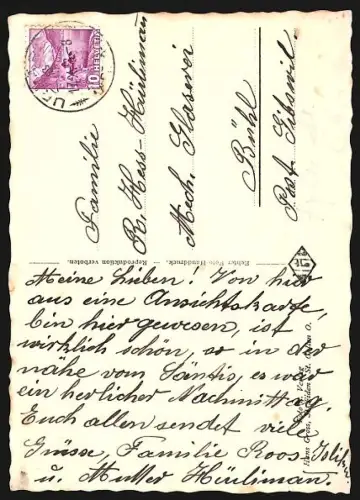 HELVETIA
10
Familie
R. Hess-Hüeliman
Mech. Glaserei
Bühl
Post Gibswil
Echter Foto Handdruck.
Reproduktion verboten.
Meine Lieben! Von hier
aus eine Ansichtskarte,
bin hier gewesen, ist
wirklich schön, so in der
nähe vom Säntis, es war
ein herlicher Nachmittag.
Euch allen sendet viel
Grüsse, Familie Roos
u. Mutter Hüeliman.